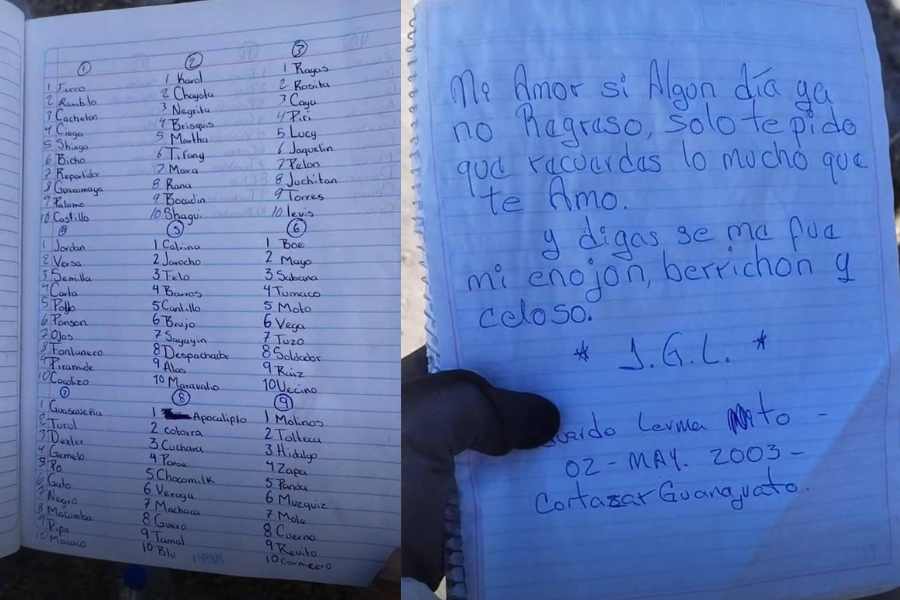 1 2 3
1 Karol 1 Rayas
2 Rambo 2 Chayota 2 Rosita
3 Cacheton 3 Negrita 3 Cayu
4 Ciego 4 Brisquis 4 Piri
5 Shiago 5 Martha 5 Lucy
6 Bicho 6 Tifany 6 Jaquelin
7 Repartidor 7 Mora 7 Pelon
8 Guacamaya 8 Rana 8 Juchitan
9 Palomo 9 Bocadin 9 Torres
10 Castillo 10 Shagui 10 Levis
5 6
1 Jordan 1 Catrina 1 Boe
2 Versa 2 Jarocho 2 Mayo
3 Semilla 3 Telo 3 Sabana
4 Carta 4 Barros 4 Tumaco
5 Pollo 5 Cantillo 5 Moto
6 Ponson 6 Brujo 6 Vega
7 Ojos 7 Sayayin 7 Tuzo
8 Fontanero 8 Despachador 8 Soldador
9 Piramide 9 Alas 9 Ruiz
10 Cocodizo 10 Maravatio 10 Vecino
7 8 9
1 Guasaveña 1 Apocalipto 1 Molinos
2 Turul 2 Cotorra 2 Tolteca
3 Dexter 3 Cuchara 3 Hidalgo
4 Gemelo 4 4 Zapa
5 Po 5 Chocomilk 5 Panda
6 Gato 6 Veruga 6 Muzquiz
7 Negro 7 Machaca 7 Mola
8 Macumba 8 Guero 8 Cuerno
9 Ripa 9 Tamal 9 Revito
10 Macaco 10 Blu 10 Carnicero
Mi Amor si Algon día ya
no Regreso, solo te pido
que recuerdes lo mucho que
te Amo.
y digas se me fue
mi enojon, berrichon y
celoso.
* J.G.L. *
Lerma -
02 - MAY. 2003 -
Cortazar Guanajuato.